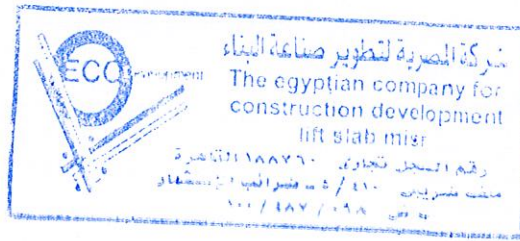 ECC
شركة المصرية لتطوير صناعة البناء
The egyptian company for
construction development
lift slab misr
رقم السجل تجارى ١٨٨٧٦٠ القاهرة
ملف ضريبى ٤١٠ / ٥ ضرائب الإستثمار
١٠٠ / ٤٨٧ / ٠٩٨